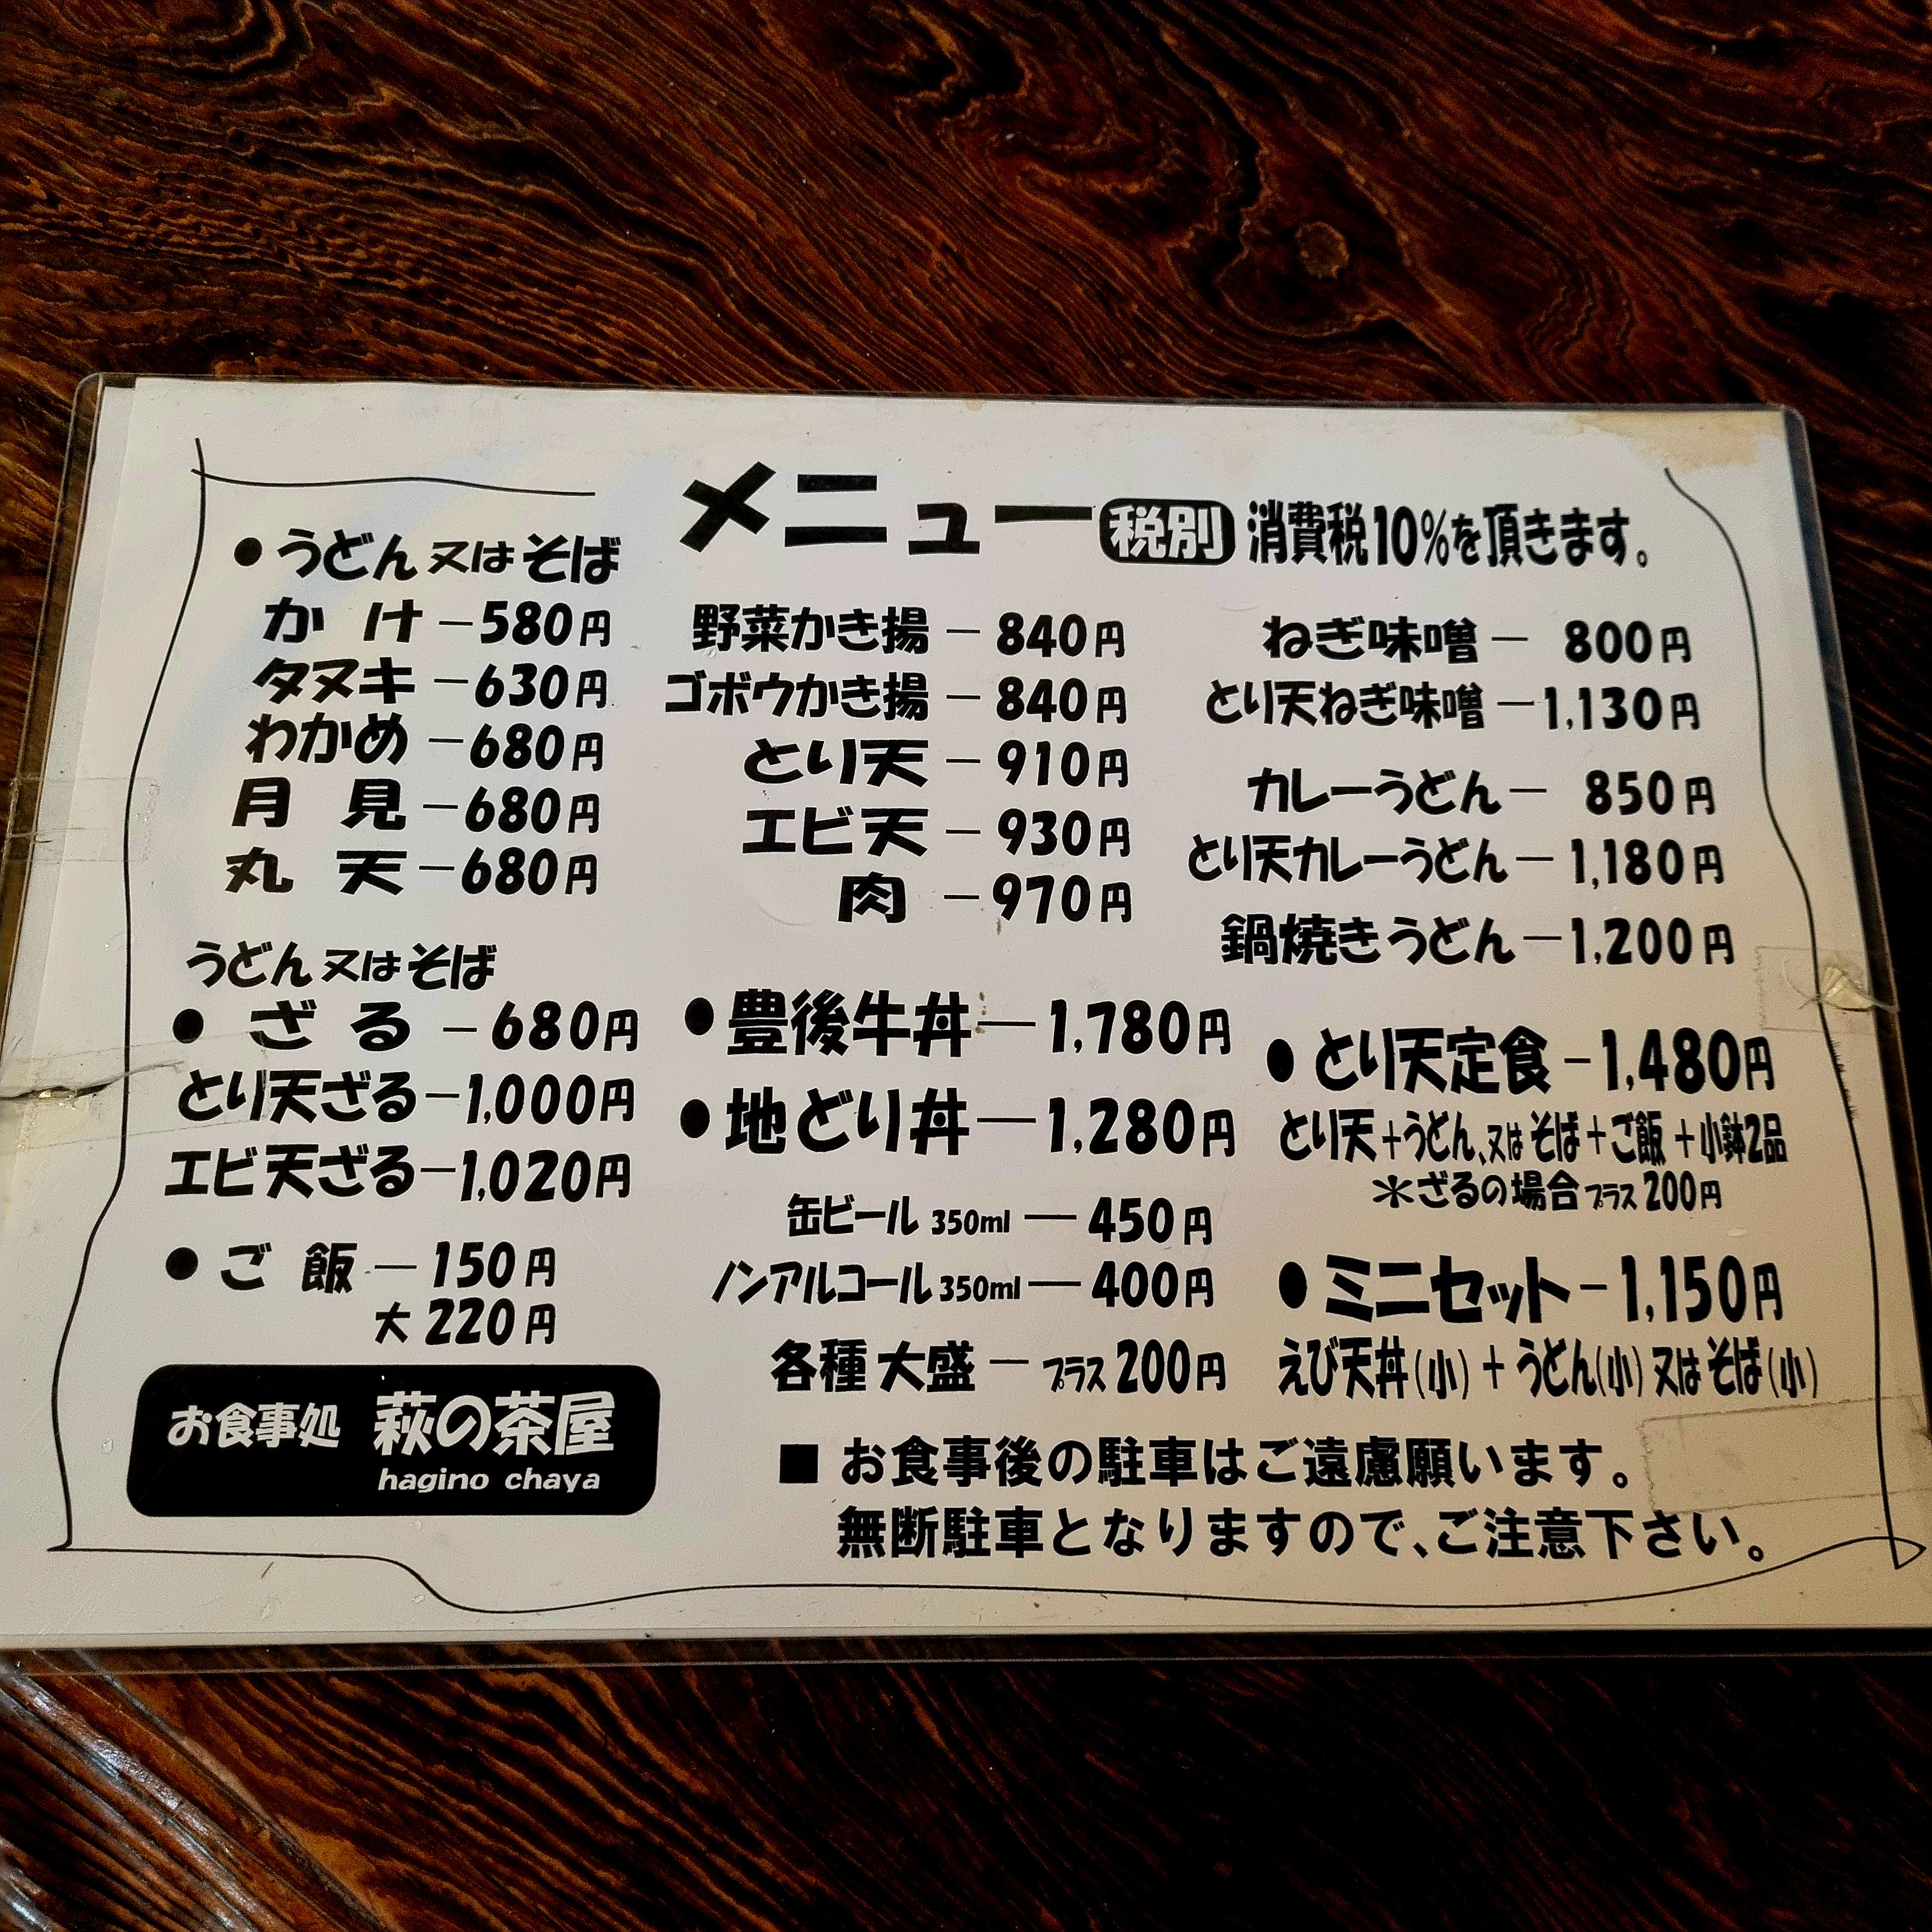 メニュー 税別 消費税10%を頂きます。
●うどん又はそば
かけ―580円
タヌキ―630円
わかめ―680円
月見―680円
丸天―680円
野菜かき揚―840円
ゴボウかき揚―840円
とり天―910円
エビ天―930円
肉―970円
ねぎ味噌―800円
とり天ねぎ味噌―1,130円
カレーうどん―850円
とり天カレーうどん―1,180円
鍋焼きうどん―1,200円
うどん又はそば
●ざる―680円
とり天ざる―1,000円
エビ天ざる―1,020円
●ご飯―150円
大220円
●豊後牛丼―1,780円
●地どり丼―1,280円
缶ビール350ml―450円
ノンアルコール350ml―400円
各種大盛―プラス200円
●とり天定食―1,480円
とり天+うどん、又はそば+ご飯+小鉢2品
*ざるの場合プラス200円
●ミニセット―1,150円
えび天丼(小)+うどん(小)又はそば(小)
お食事処 萩の茶屋
hagino chaya
■お食事後の駐車はご遠慮願います。
無断駐車となりますので、ご注意下さい。